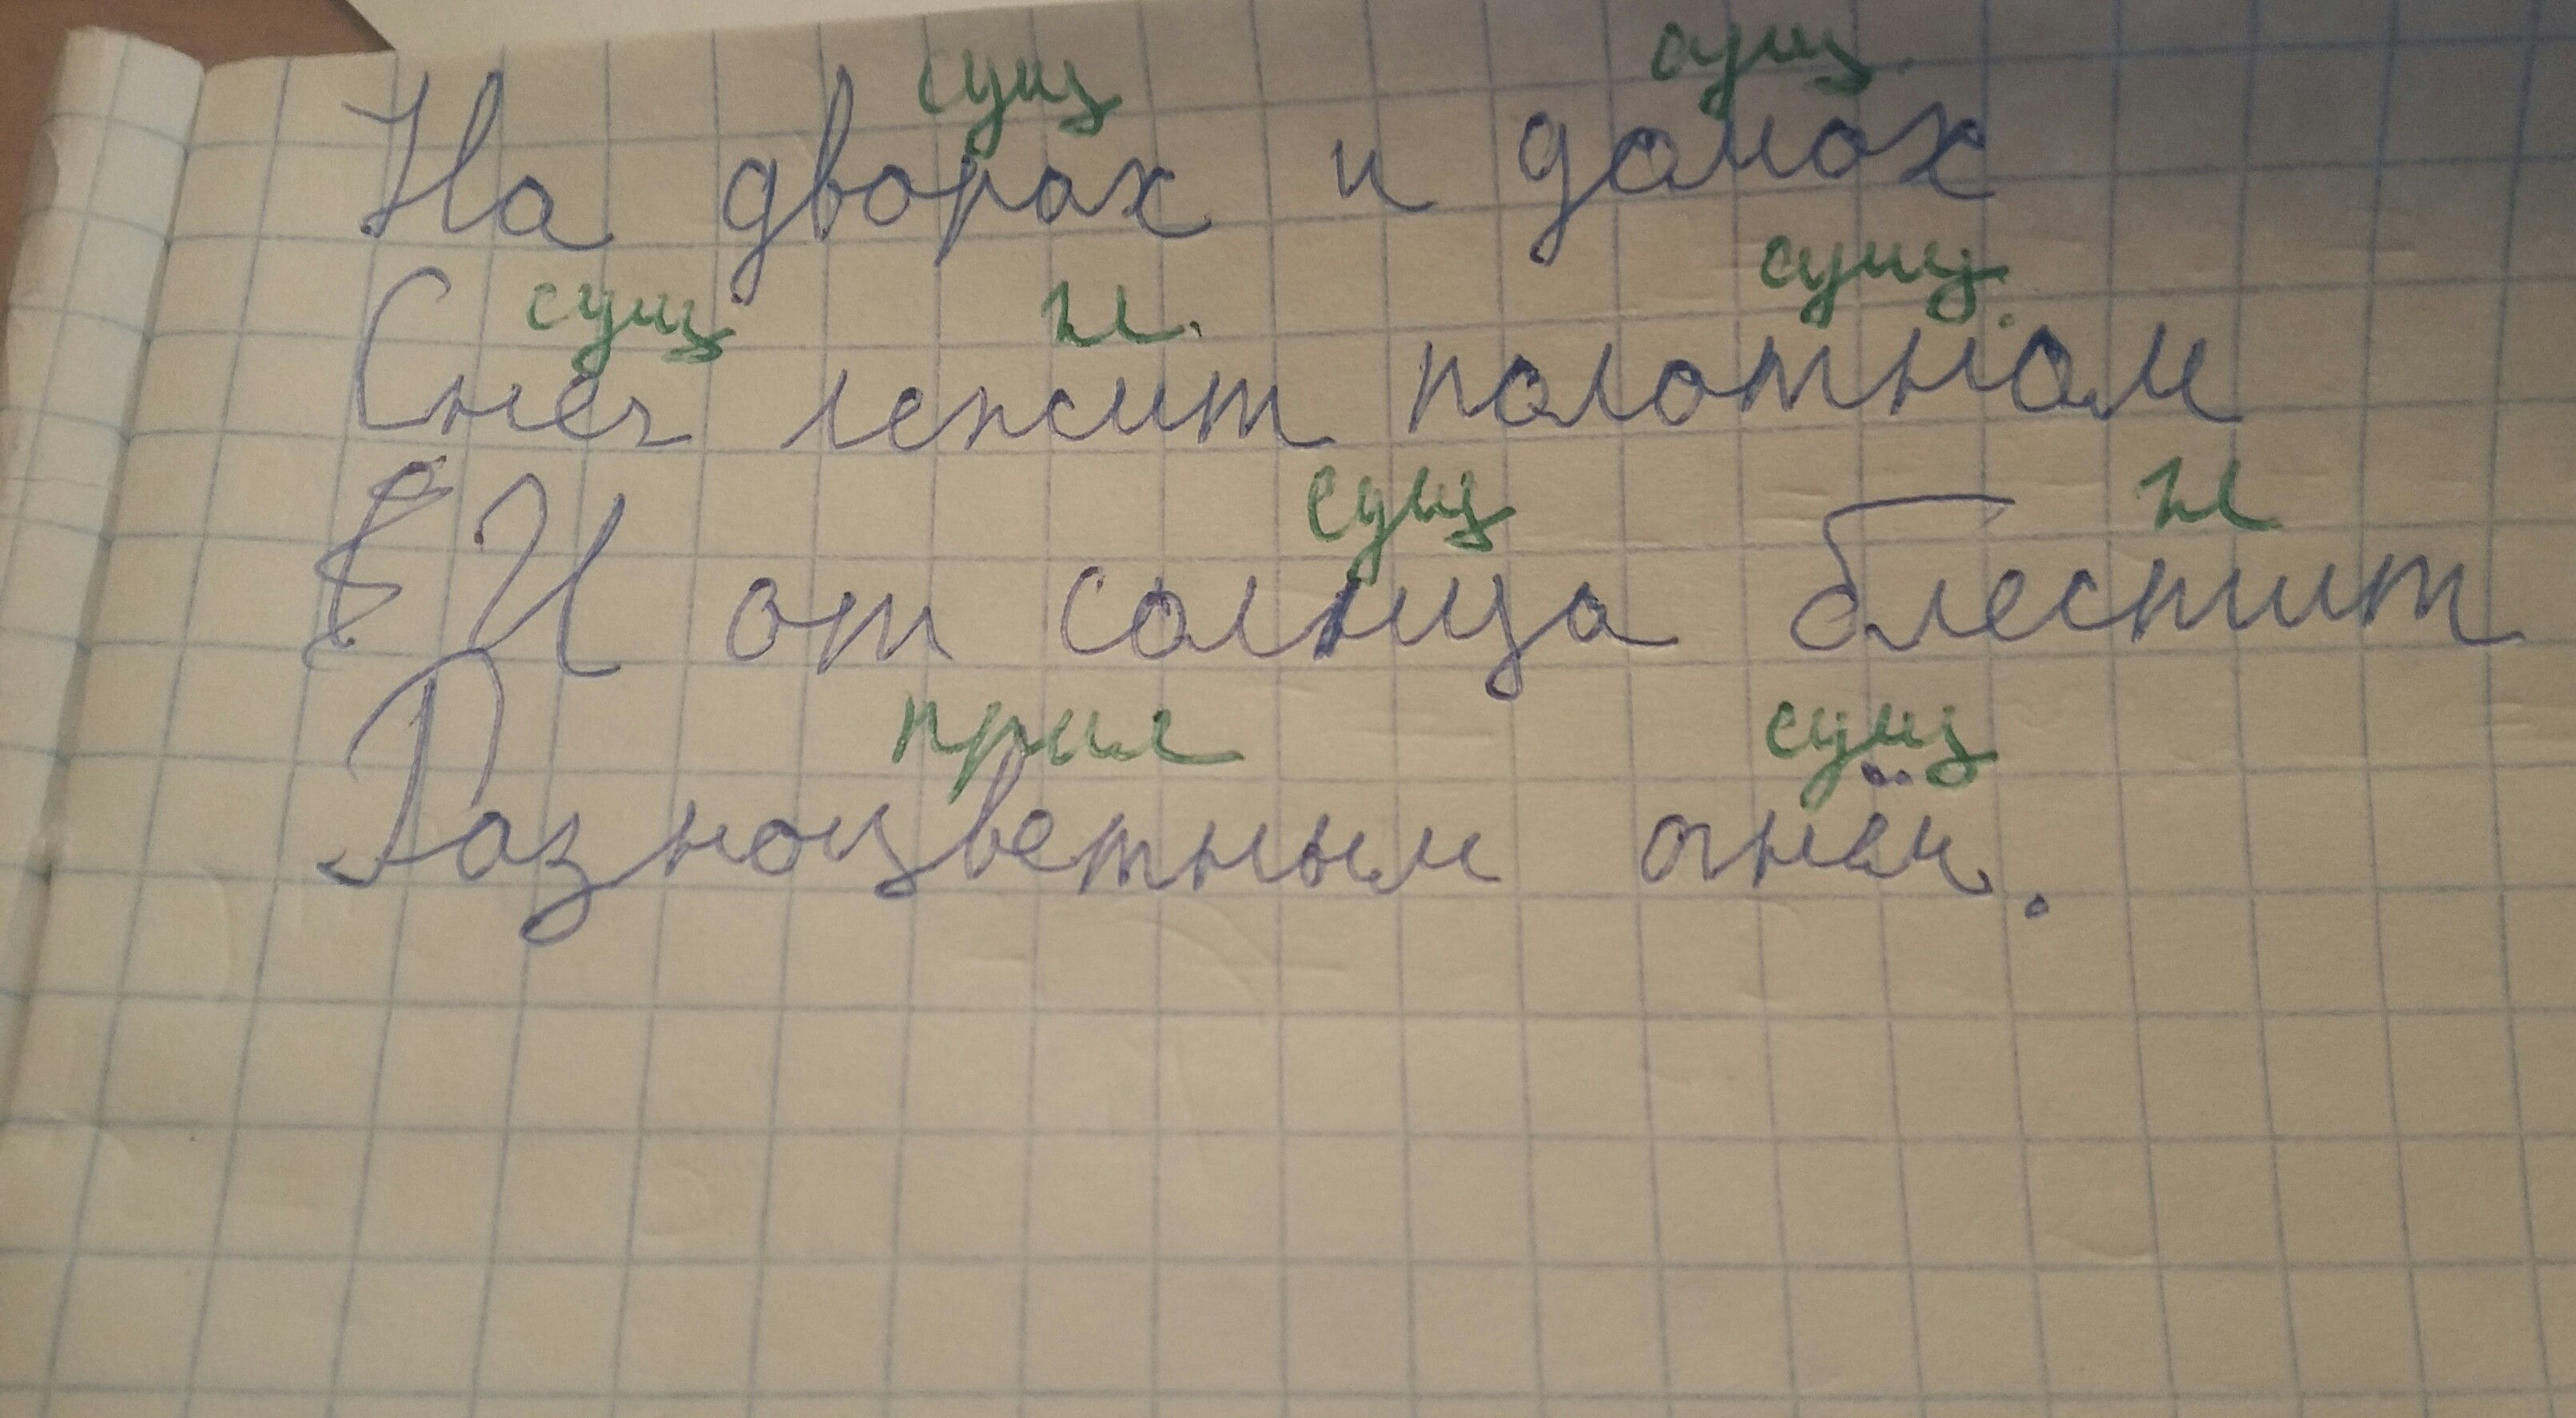 сущ сущ.
На дворах и домах
сущ гл. сущ.
Снег лежит полотном
сущ гл
И от солнца блестит
прил сущ
Разноцветным огнём.